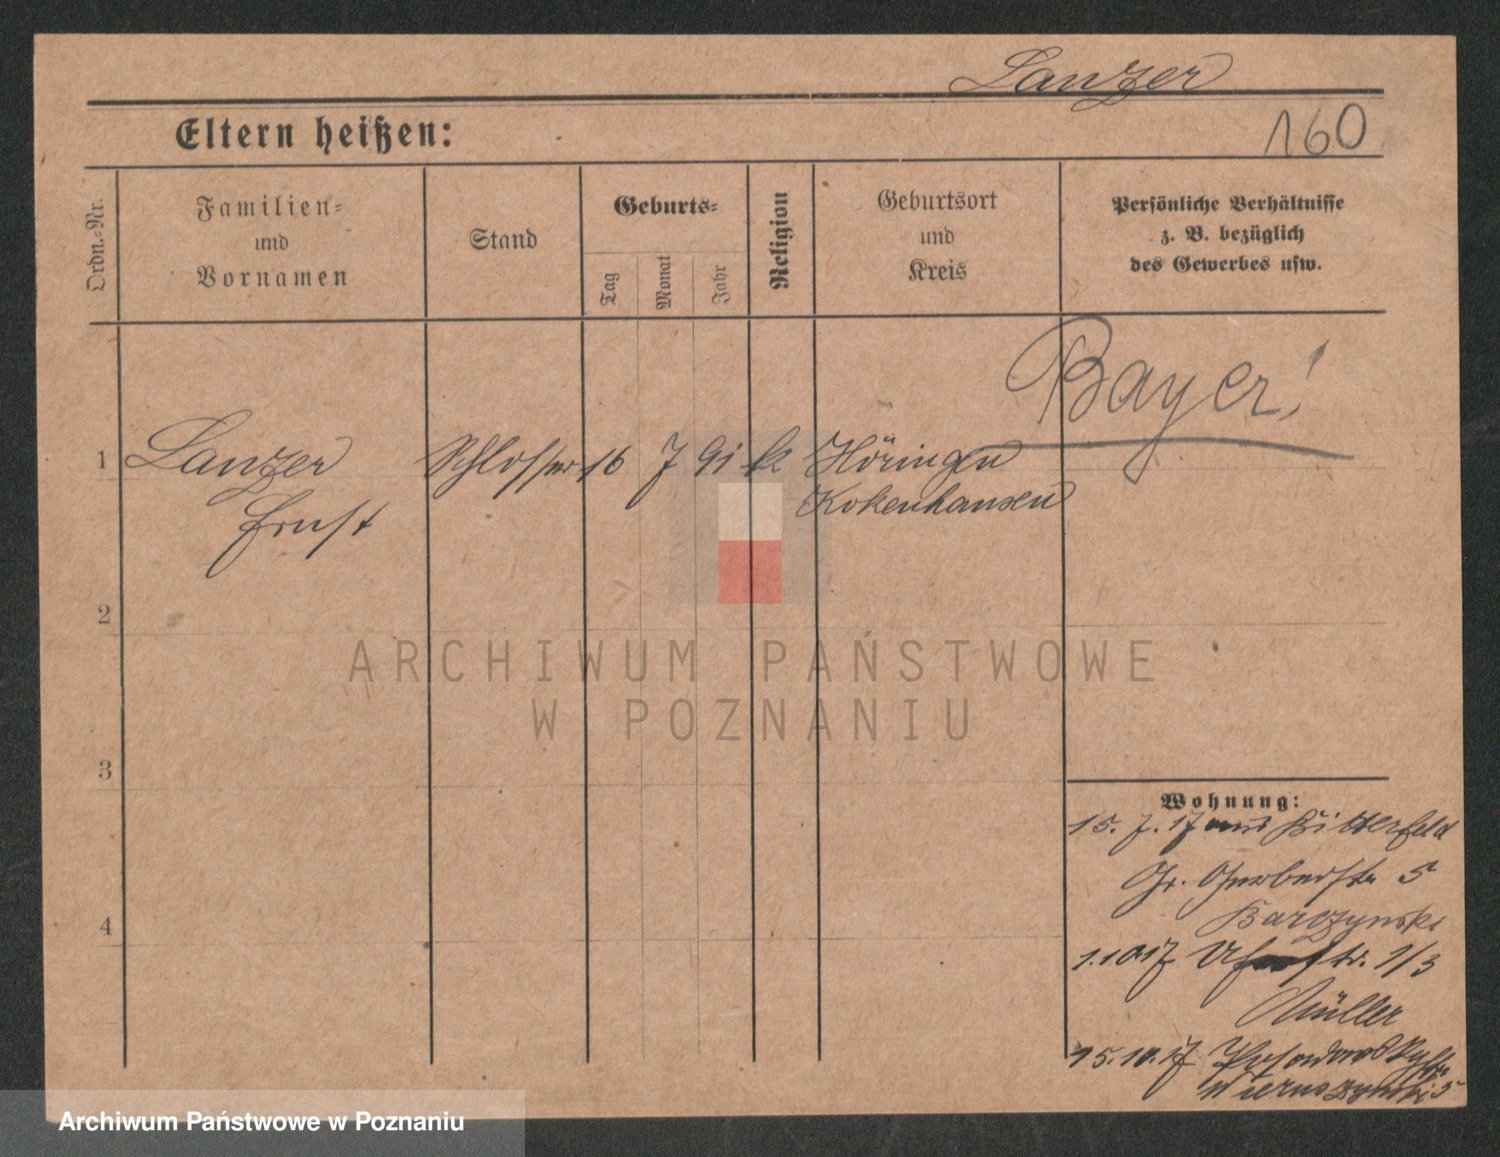 Lanzer
160
Eltern heißen:
Ordn.-Nr.
Familien-
und
Vornamen
Stand
Geburts-
Tag
Monat
Jahr
Religion
Geburtsort
und
Kreis
Persönliche Verhältnisse
z. B. bezüglich
des Gewerbes usw.
Bayer!
1 Lanzer Schlosser 16 7 91 k Höringen
Ernst Kokenhausen
2
3
4
Wohnung:
15. 7. 17 aus Bitterfeld
Gr. Gerberstr. 5
Barczynski
1.10.17 str. 1/3
Müller
15.10.17
5
ARCHIWUM PAŃSTWOWE
W POZNANIU
Archiwum Państwowe w Poznaniu